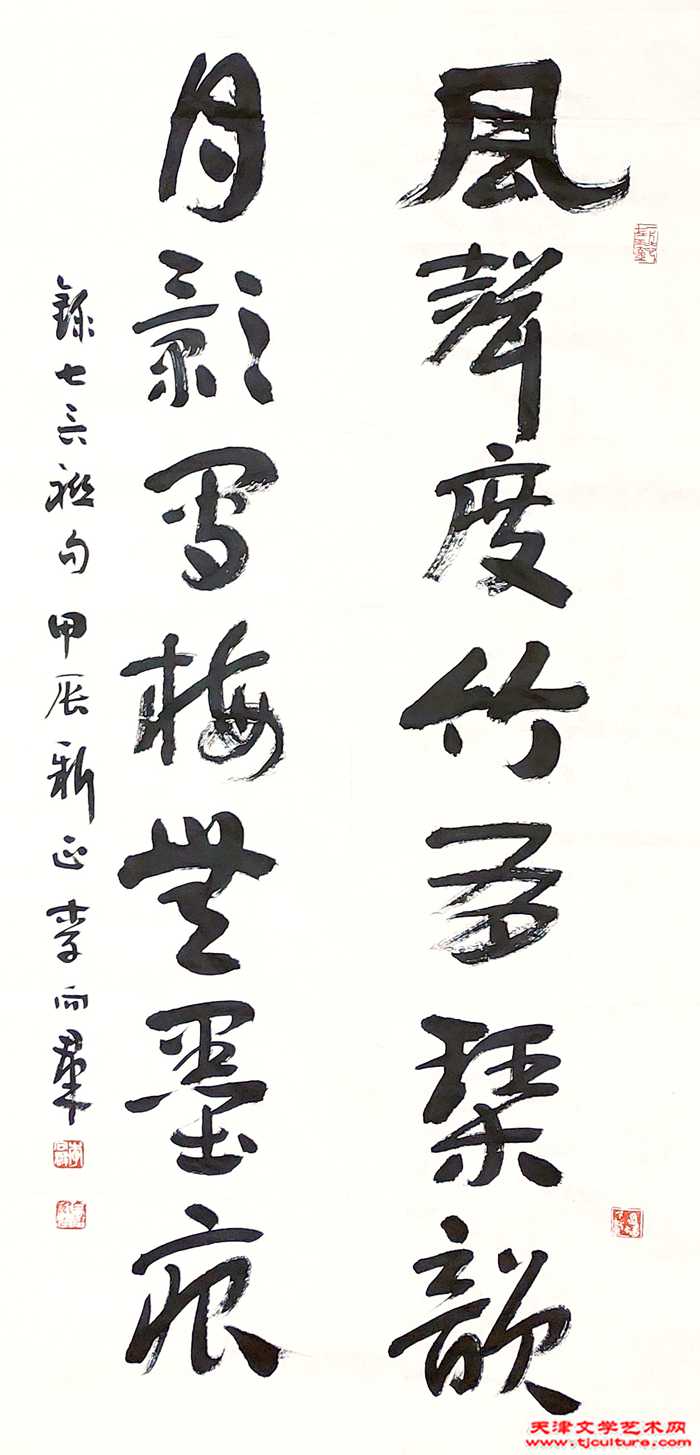 風聲度竹有琴韻
月影寫梅無墨痕
錄七言聯句 甲辰新正 李向群
天津文学艺术网
www.tjculture.com